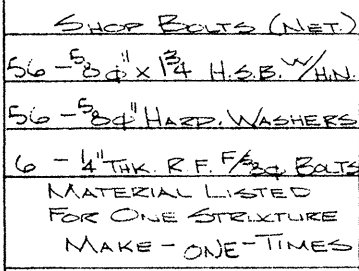 SHOP BOLTS (NET.)
56 - 5/8 ⌀" x 1 3/4 H.S.B. W/H.N.
56 - 5/8 ⌀" HARD. WASHERS
6 - 1/4" THK. R.F. F/5/8⌀ BOLTS
MATERIAL LISTED
FOR ONE STRUXTURE
MAKE - ONE - TIMES